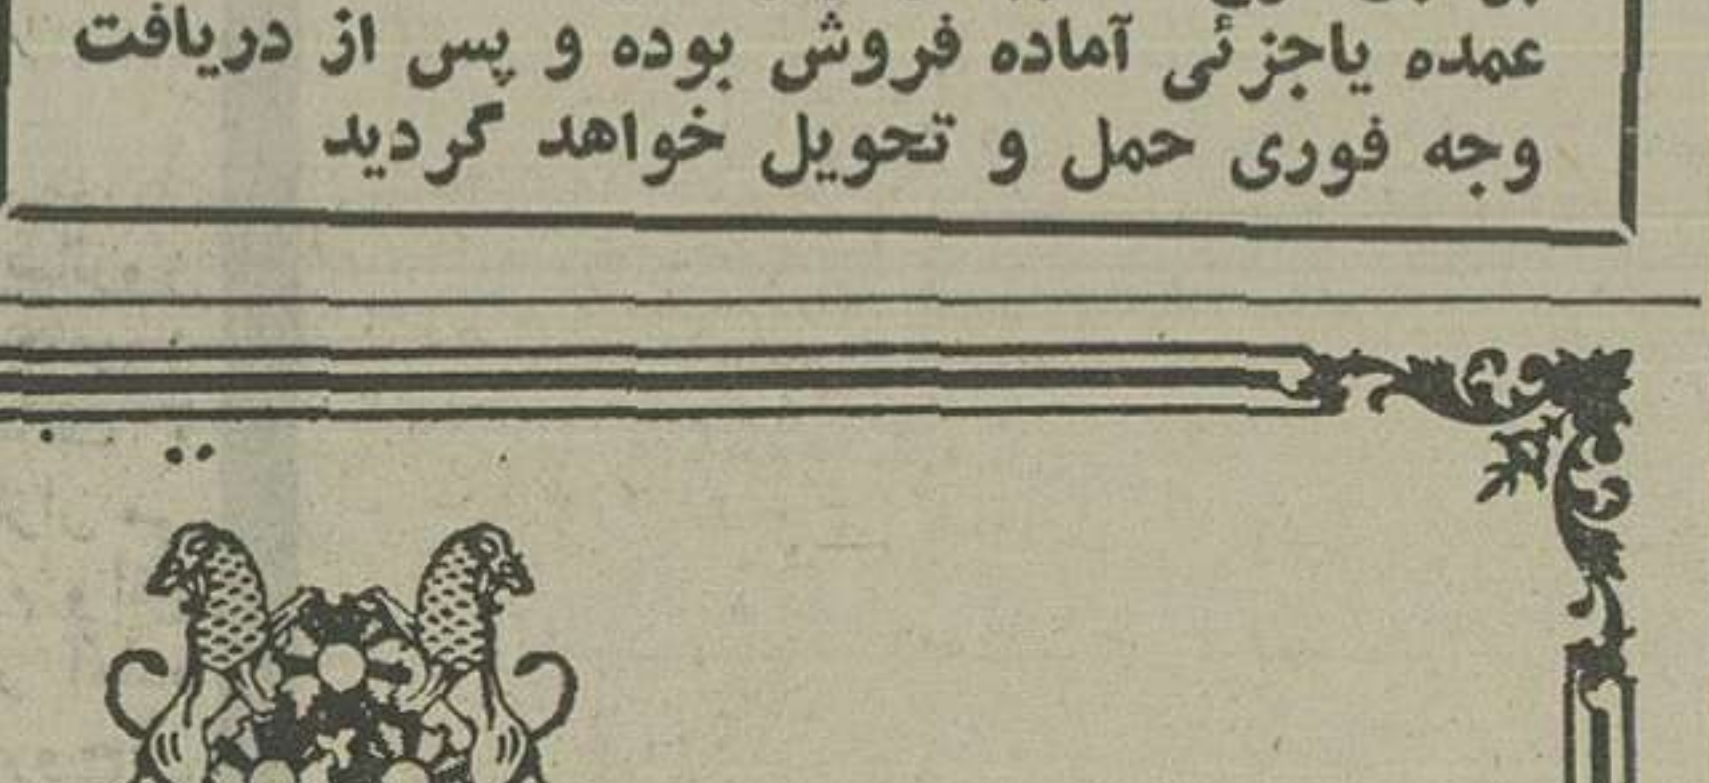 عمده یاجزئی آماده فروش بوده و پس از دریافت
وجه فوری حمل و تحویل خواهد گردید